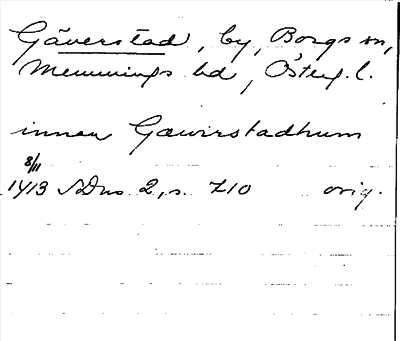 Gäverstad, by, Borgs sn,
Memmings hd, Österg.l.
innan Gæwirstadhum
8/11
1413 SDns 2, s. 710 orig.